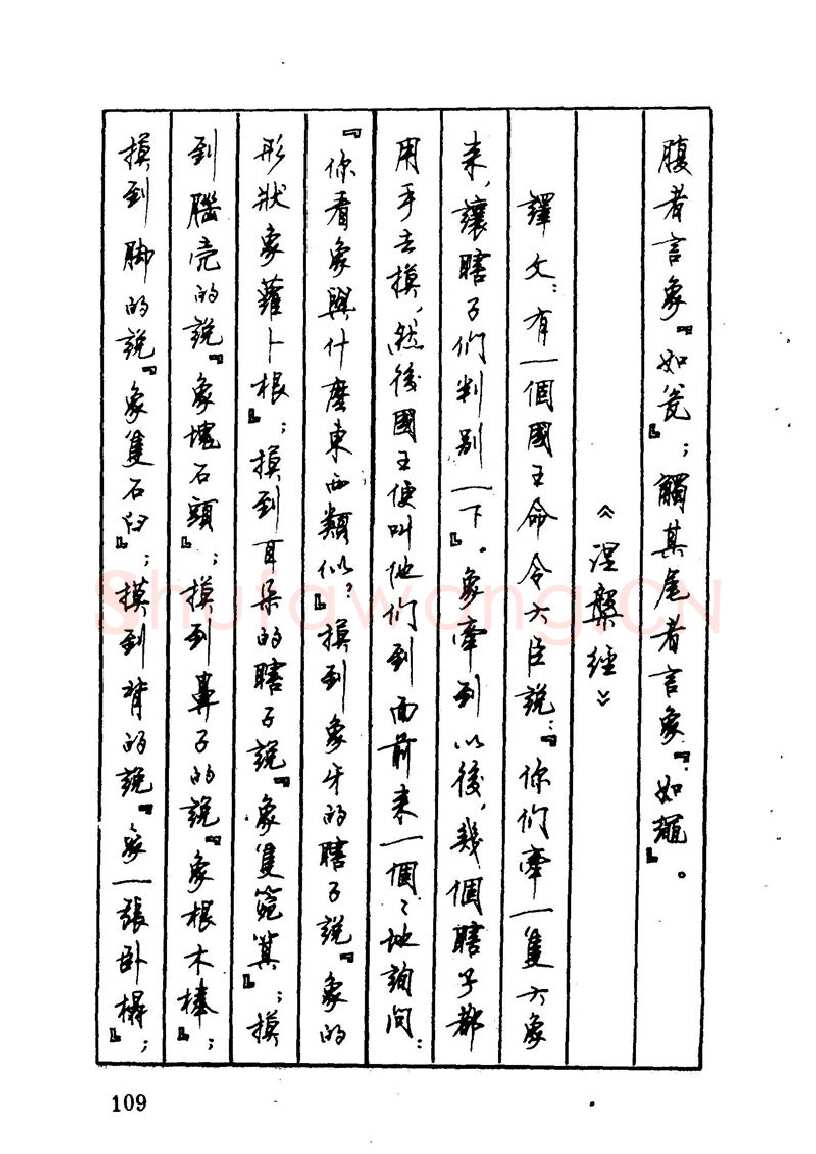 腹者言象『如瓮』；觸其尾者言象『如繩』。
《涅槃經》
譯文：有一個國王命令大臣説：『你們牽一隻大象
來，讓瞎子們判别一下』。象牽到以後，幾個瞎子都
用手去摸，然後國王便叫他們到面前来一個〻地詢問：
『你看象與什麽東西類似？』摸到象牙的瞎子説『象的
形狀象蘿卜根』；摸到耳朵的瞎子説『象隻箢箕』；摸
到腦壳的説『象塊石頭』；摸到鼻子的説『象根木棒』；
摸到脚的説『象隻石臼』；摸到背的説『象一張卧榻』；
109
Shufawang.CN